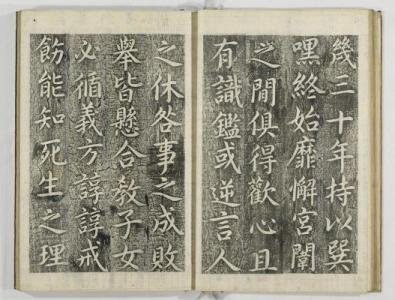 幾三十年持以巽
嘿終始靡懈宮闈
之閒俱得歡心且
有識鑑或逆言人
之休咎事之成敗
舉皆懸合教子女
必循義方諄諄戒
飭能知死生之理